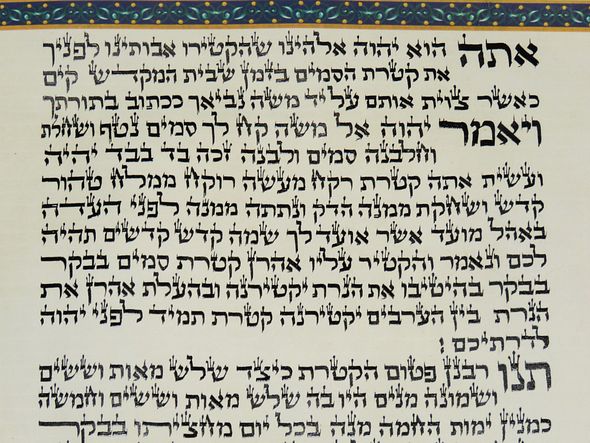 אתה הוא יהוה אלהינו שהקטירו אבותינו לפניך
את קטרת הסמים בזמן שבית המקדש קים
כאשר צוית אותם על יד משה נביאך ככתוב בתורתך
ויאמר יהוה אל משה קח לך סמים נטף ושחלת
וחלבנה סמים ולבנה זכה בד בבד יהיה
ועשית אתה קטרת רקח מעשה רוקח ממלח טהור
קדש ושחקת ממנה הדק ונתתה ממנה לפני העדה
באהל מועד אשר אועד לך שמה קדש קדשים תהיה
לכם ונאמר והקטיר עליו אהרן קטרת סמים בבקר
בבקר בהיטיבו את הנרת יקטירנה ובהעלת אהרן את
הנרת בין הערבים יקטירנה קטרת תמיד לפני יהוה
לדרתיכם :
תנו רבנן פטום הקטרת כיצד שלש מאות וששים
ושמונה מנים היו בה שלש מאות וששים וחמשה
כמנין ימות החמה מנה בכל יום מחציתו בבקר